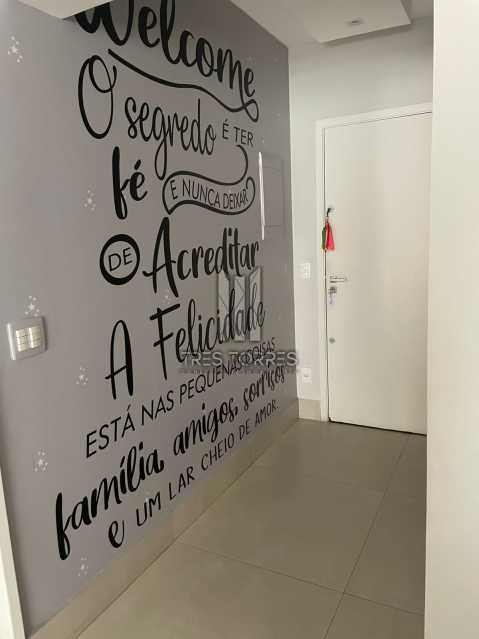 Welcome
O segredo É TER
fé E NUNCA DEIXAR
DE Acreditar
A Felicidade
TRES TORRES
ESTÁ NAS PEQUENAS COISAS
família, amigos, sorrisos
e UM LAR CHEIO DE AMOR.